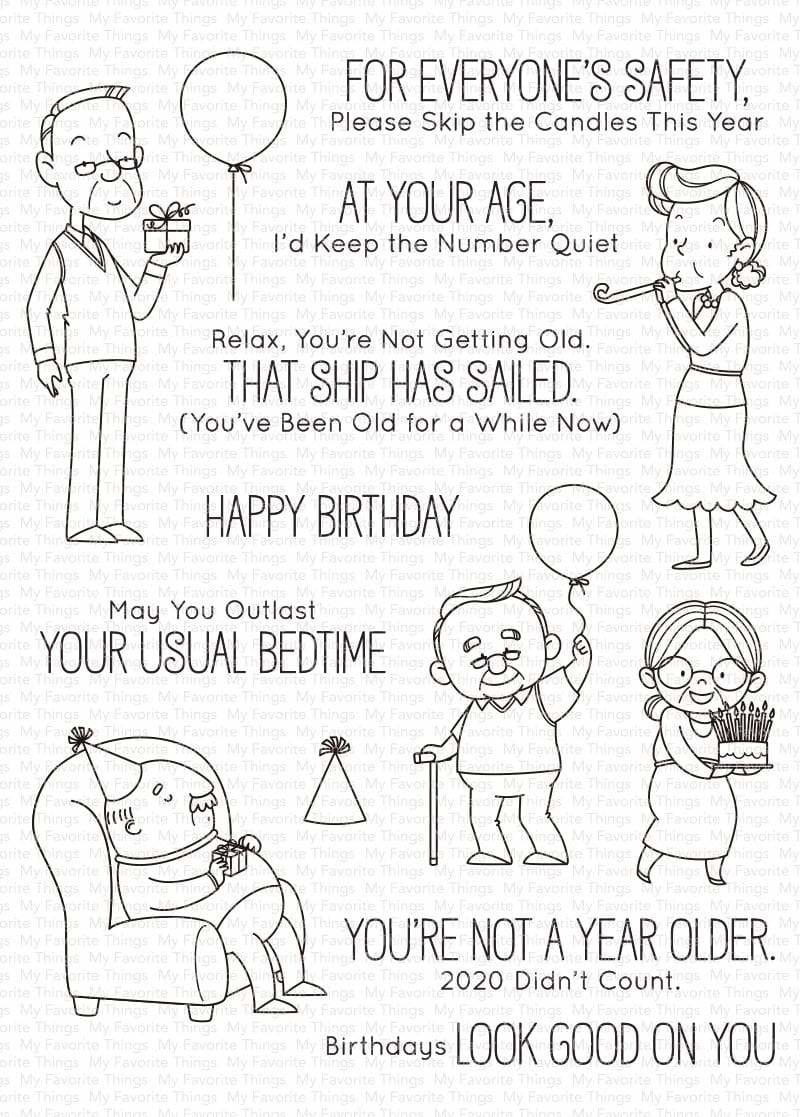 FOR EVERYONE'S SAFETY,
Please Skip the Candles This Year
AT YOUR AGE,
I'd Keep the Number Quiet
Relax, You're Not Getting Old.
THAT SHIP HAS SAILED.
(You've Been Old for a While Now)
HAPPY BIRTHDAY
May You Outlast
YOUR USUAL BEDTIME
YOU'RE NOT A YEAR OLDER.
2020 Didn't Count.
Birthdays LOOK GOOD ON YOU
My Favorite Things